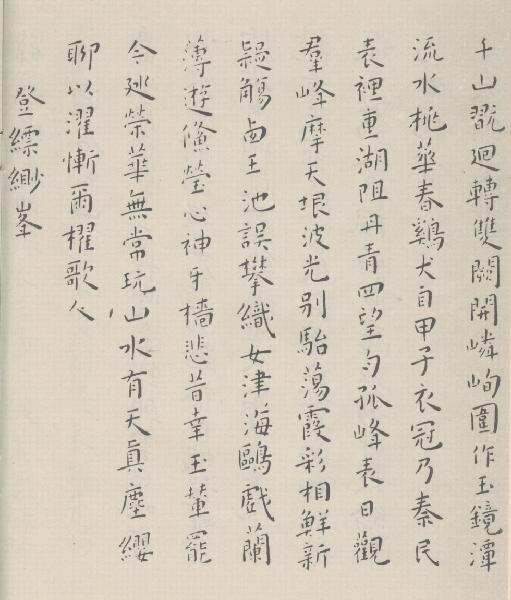 千山翫迴轉雙闕開嶙峋圍作玉鏡潭
流水桃華春鷄犬自甲子衣冠乃秦民
表裡重湖阻丹青四望勻孤峰表日觀
羣峰摩天垠波光别駘蕩霞彩相鮮新
疑觴西王池誤攀織女津海鷗戲蘭
薄遊鯈瑩心神牙檣悲昔幸玉輦罷
今廵榮華無常玩山水有天真塵纓
聊以濯慚爾櫂歌人
登縹緲峯